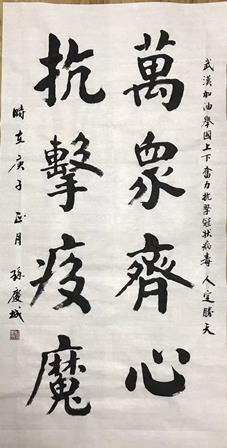 武漢加油舉國上下奮力抗擊冠狀病毒人定勝天
萬衆齊心
抗擊疫魔
時在庚子正月孫慶城